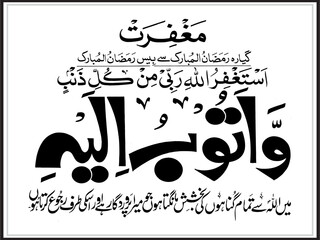 مَغْفِرَت
گیارہ رَمَضَانُ الْمُبَارَک سے بیس رَمَضَانُ الْمُبَارَک
اَسْتَغْفِرُ اللہَ رَبِّیْ مِنْ کُلِّ ذَنْبٍ
وَّاَتُوْبُ اِلَیْہِ
میں اللہ سے تمام گناہوں کی بخشش مانگتا ہوں جو میرا پروردگار ہے اور اسکی طرف رجوع کرتا ہوں